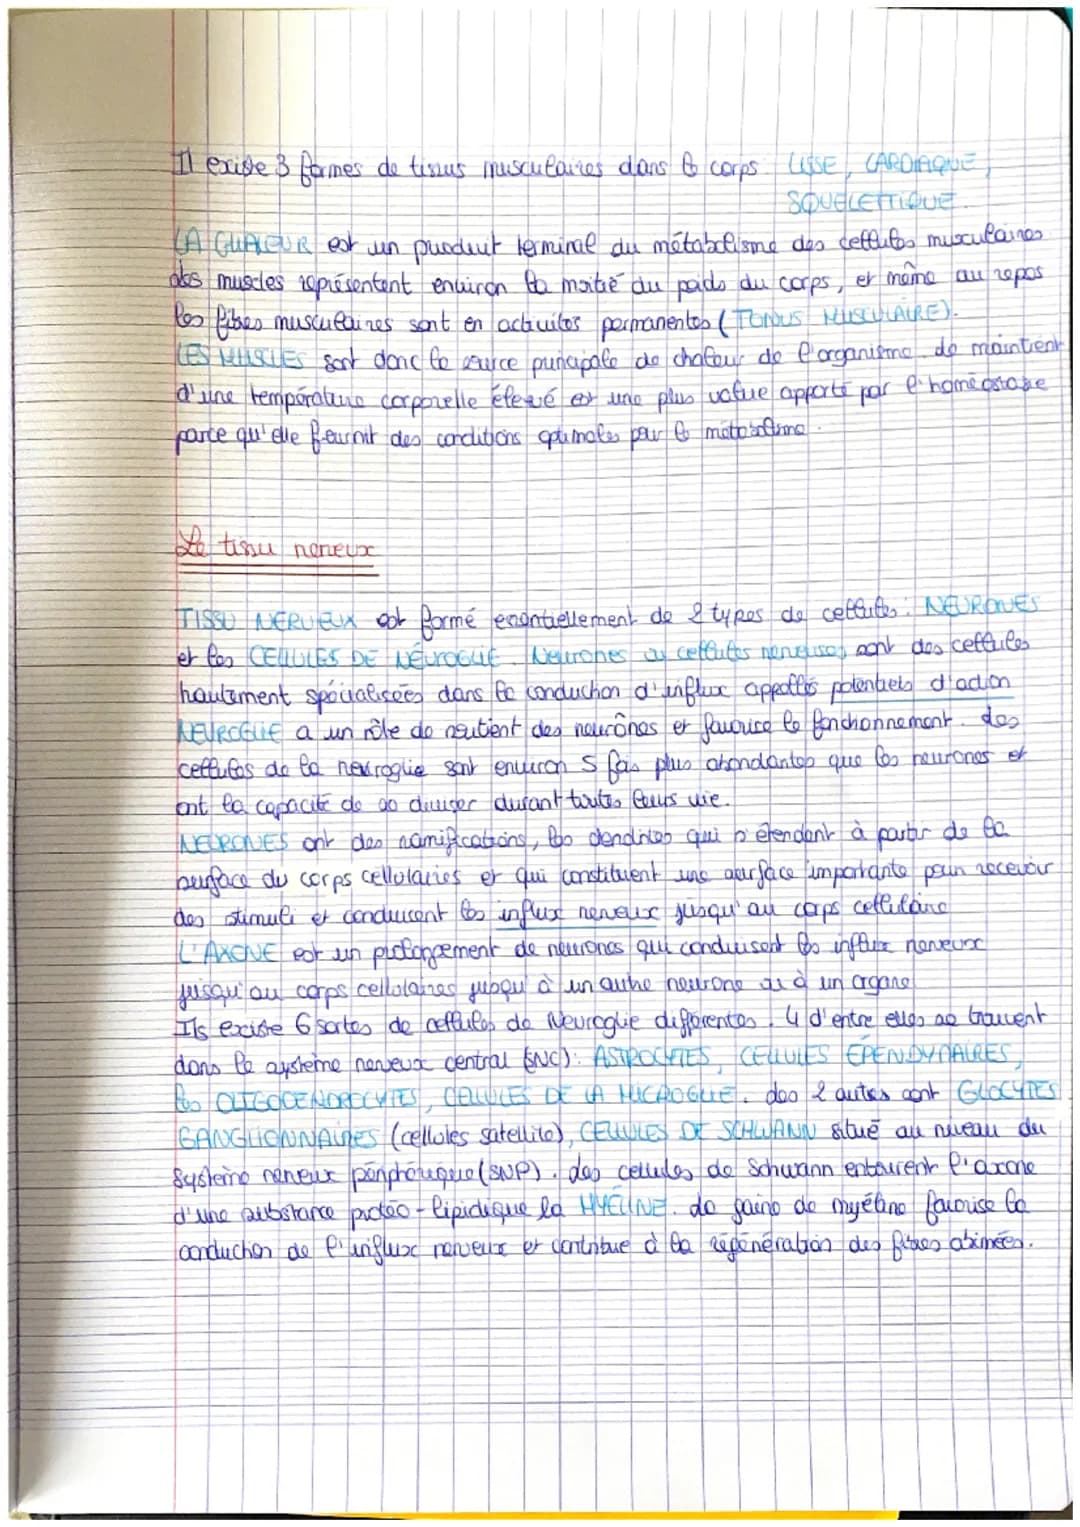 Il existe 3 formes de tissus musculaires dans le corps. LISSE, CARDIAQUE,
SQUELETTIQUE.
LA CHALEUR est un produit terminal du métabolisme des cellules musculaires
les muscles représentent environ la moitié du poids du corps, et même au repos
les fibres musculaires sont en activités permanentes (TONUS MUSCULAIRE).
LES MUSCLES sont donc la source principale de chaleur de l'organisme. le maintient
d'une température corporelle élevé est une plus value apporté par l'homéostasie
parce qu'elle fournit des conditions optimales pour le métabolisme.
Le tissu nerveux
TISSU NERVEUX est formé essentiellement de 2 types de cellules : NEURONES
et les CELLULES DE NÉVROGLIE. Neurones ou cellules nerveuses sont des cellules
hautement spécialisées dans la conduction d'influx appellés potentiels d'action
NEVROGLIE a un rôle de soutient des neurônes et favorise le fonctionnement. les
cellules de la nevroglie sont environ 5 fois plus abondantes que les neurones et
ont la capacité de se diviser durant toutes leurs vie.
NEURONES ont des ramifications, les dendrites qui s'étendent à partir de la
surface du corps cellulaires et qui constituent une surface importante pour recevoir
des stimuli et conduisent les influx nerveux jusqu'au corps cellulaire
L'AXONE est un prolongement de neurones qui conduisent les influx nerveux
jusqu'au corps cellulaires jusqu'à un autre neurone ou à un organe
Ils existe 6 sortes de cellules de Nevroglie différentes. 4 d'entre elles se trouvent
dans le système nerveux central (SNC) : ASTROCYTES, CELLULES ÉPENDYMAIRES,
les OLIGODENDROCYTES, CELLULES DE LA MICROGLIE. les 2 autres sont GLIOCYTES
GANGLIONNAIRES (cellules satellite), CELLULES DE SCHWANN situé au niveau du
Système nerveux périphérique (SNP). les cellules de Schwann entourent l'axone
d'une substance protéo-lipidique la MYÉLINE. la gaine de myéline favorise la
conduction de l'influx nerveux et contribue à la régénération des fibres abimées.